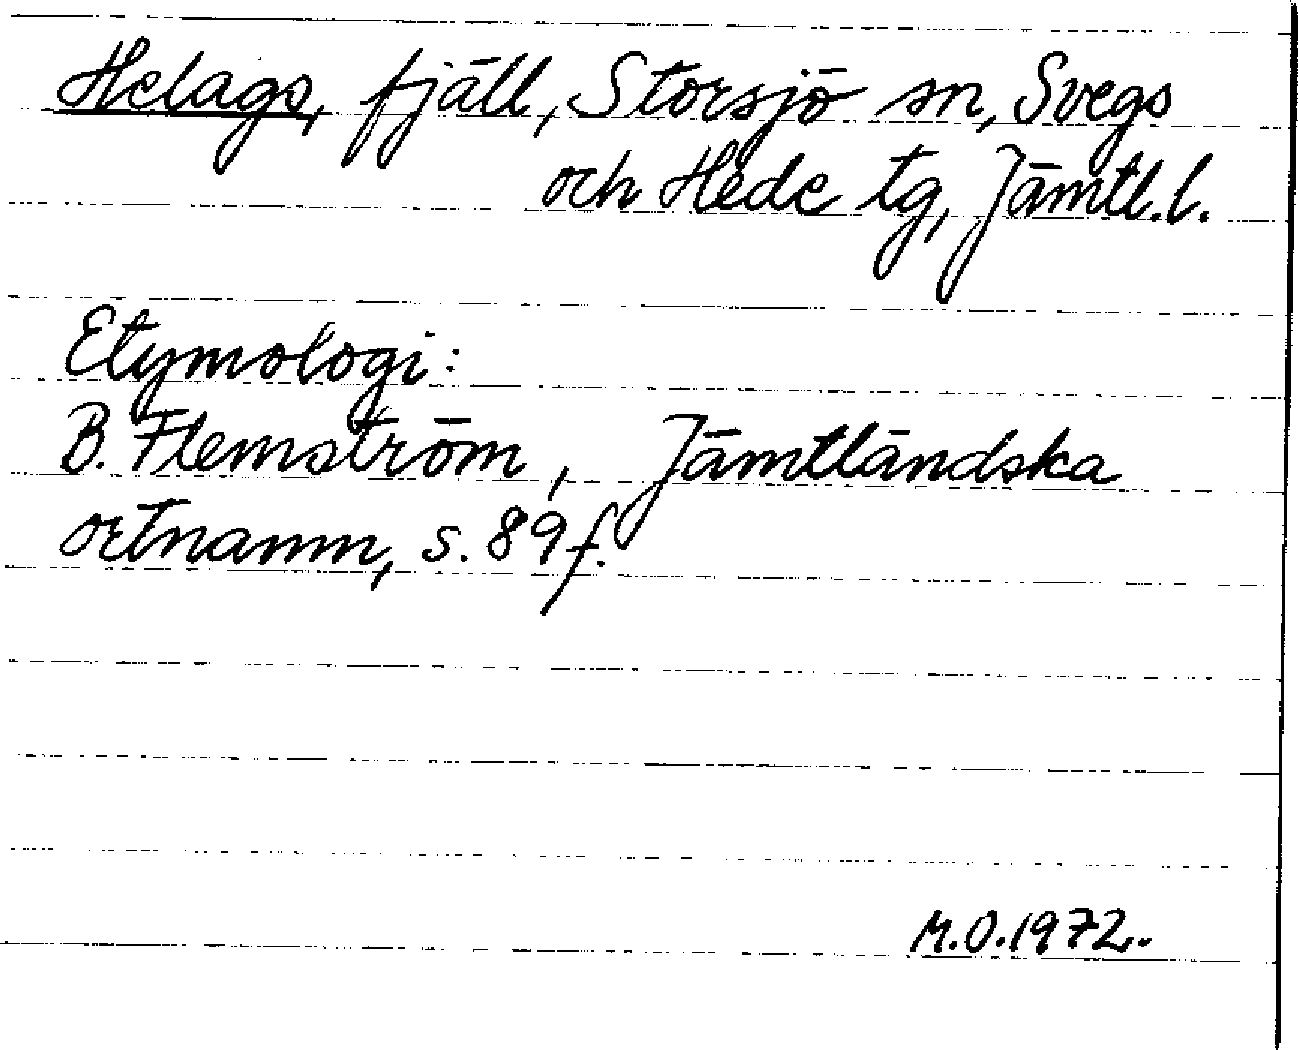 Helags, fjäll, Storsjö sn, Svegs
och Hede tg, Jämtl.l.
Etymologi:
B. Flemström, Jämtländska
ortnamn, s. 89f.
M.O.1972.